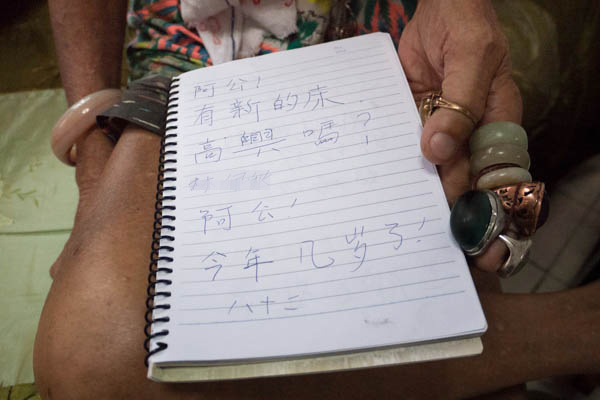 阿公!
有新的床.
高興嗎?
阿公!
今年几岁了!
八十二